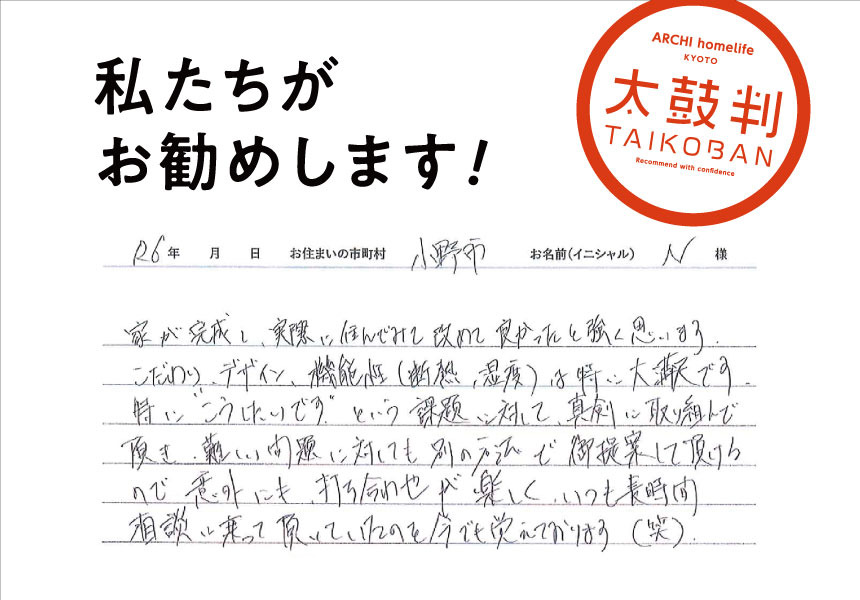 私たちが
お勧めします!
ARCHI homelife
KYOTO
太鼓判
TAIKOBAN
Recommend with confidence
R6年 月 日 お住まいの市町村 小野市 お名前(イニシャル) N 様
家が完成し、実際に住んでみて改めて良かったと強く思います。
こだわり、デザイン、機能性(断熱、湿度)は特に大満足です。
特に"こうしたいです"という課題に対して、真剣に取り組んで
頂き、難しい問題に対しても別の方法で御提案して頂ける
ので意外にも、打ち合わせが楽しく、いつも長時間
相談に乗って頂いていたのを今でも覚えております(笑)。